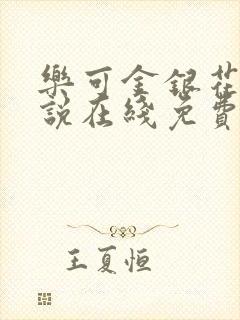 樂可金銀花
說在綫免費
王夏恒